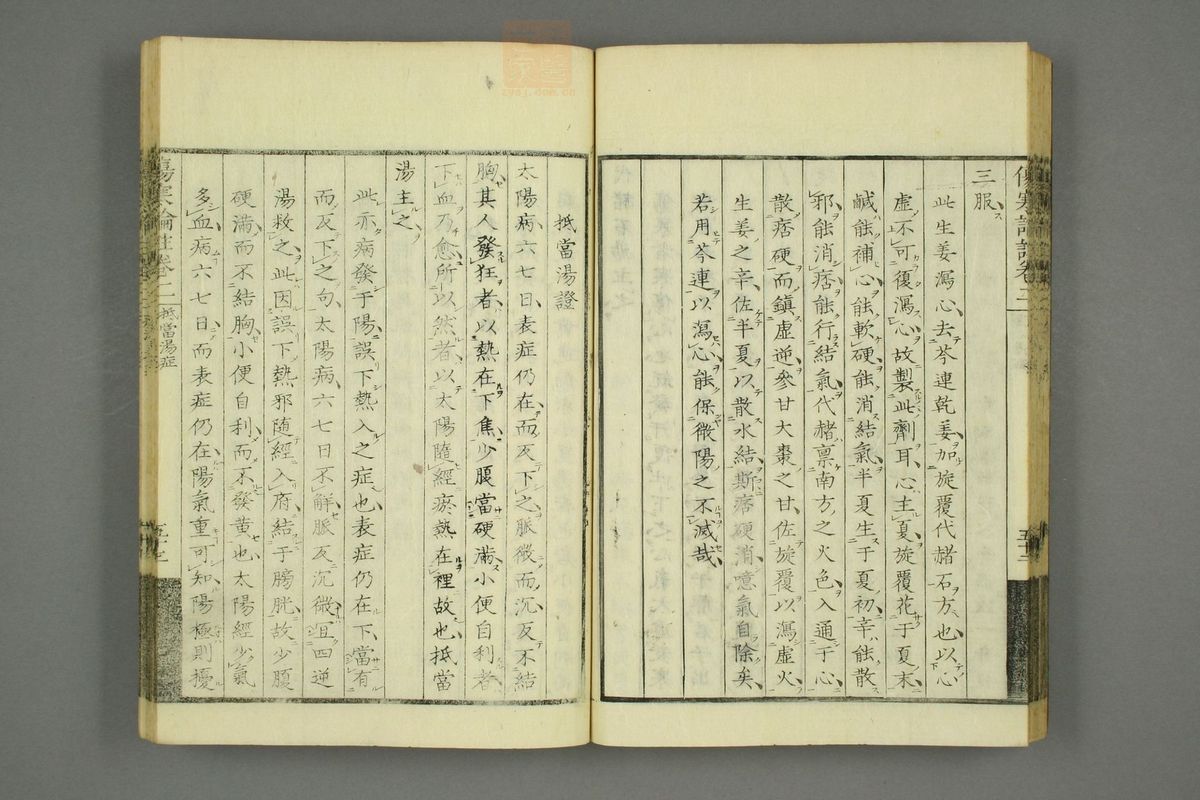 三服
此生姜瀉心去芩連乾姜加旋覆代赭石方也以心
虛不可復瀉心故製此劑耳心主夏旋覆花于夏末
鹹能補心能軟硬能消結氣半夏生于夏初辛能散
邪能消痞能行結氣代赭禀南方之火色入通于心
散痞硬而鎮虛逆參甘大棗之甘佐旋覆以瀉虛火
生姜之辛佐半夏以散水結斯痞硬消噫氣自除矣
若用芩連以瀉心能保微陽之不滅哉
抵當湯證
太陽病六七日表症仍在而反下之脈微而沉反不結
胸其人發狂者以熱在下焦少腹當硬滿小便自利者
下血乃愈所以然者以太陽隨經瘀熱在裡故也抵當
湯主之
此亦病發于陽誤下熱入之症也表症仍在下當有
而反下之句太陽病六七日不解脈反沉微宜四逆
湯救之此因誤下熱邪隨經入府結于膀胱故少腹
硬滿而不結胸小便自利而不發黄也太陽經少氣
多血病六七日而表症仍在陽氣重可知陽極則擾
傷寒論註卷二
抵當湯症